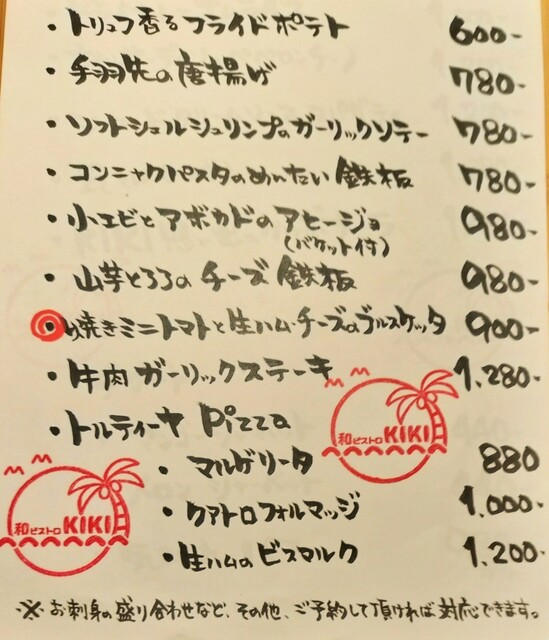 ・トリュフ香るフライドポテト 600-
・手羽先の唐揚げ 780-
・ソフトシェルシュリンプのガーリックソテー 780-
・コンニャクパスタのめんたい鉄板 780-
・小エビとアボカドのアヒージョ 980-
(バケット付)
・山芋とろろのチーズ鉄板 980-
・焼きミニトマトと生ハム・チーズのブルスケッタ 900-
・牛肉ガーリックステーキ 1,280-
・トルティーヤ Pizza
和ビストロ KIKI
・マルゲリータ 880
・クアトロフォルマッジ 1,000-
和ビストロ KIKI
・生ハムのビスマルク 1,200-
※お刺身の盛り合わせなど、その他、ご予約して頂ければ対応できます。